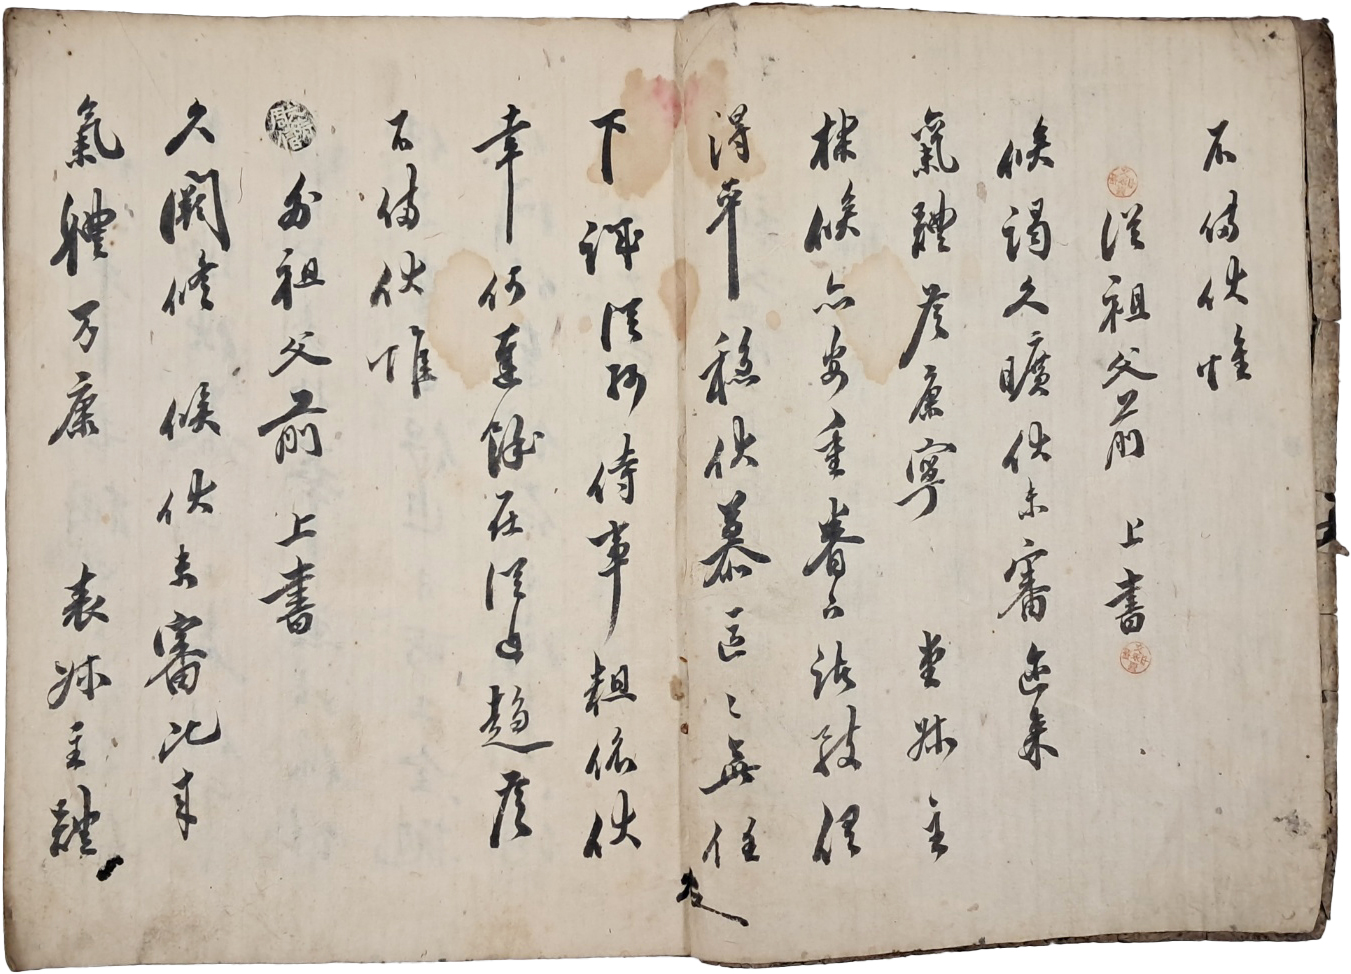 不備伏惟
從祖父前 上書
候謁久曠伏未審邇來
氣體萬康寧 堂姊主
棣候亦安重眷下諸致俱
得平穩伏慕區區無任
下誠從孫侍事粗依伏
幸何達餘在從口趨
不備伏惟
外祖父前 上書
久闕修候伏未審比來
氣體万康 表姊主體